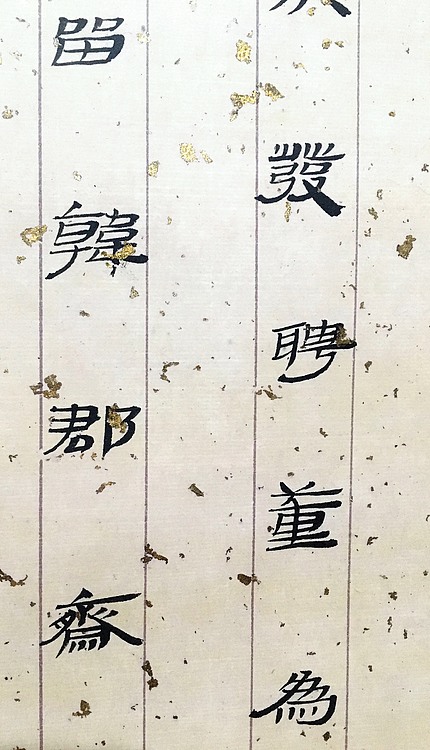 發聘董為
留韓郡齋